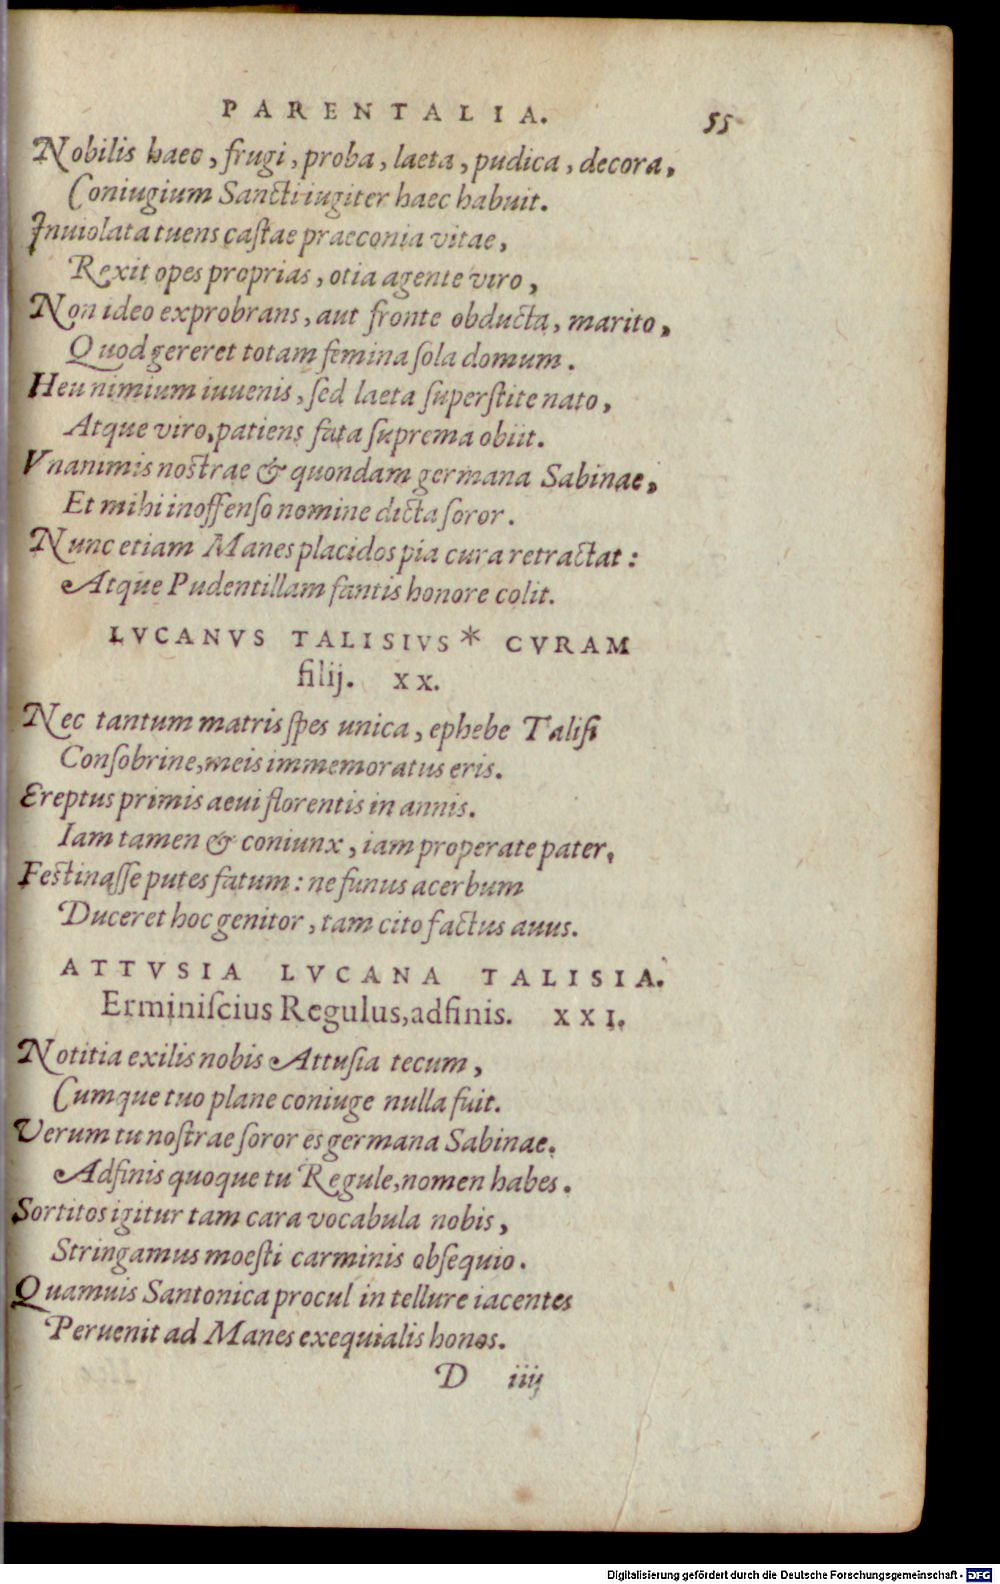 PARENTALIA. 55
Nobilis haec, frugi, proba, laeta, pudica, decora,
Coniugium Sancti iugiter haec habuit.
Inuiolata tuens castae praeconia vitae,
Rexit opes proprias, otia agente viro,
Non ideo exprobrans, aut fronte obducta, marito,
Quod gereret totam femina sola domum.
Heu nimium iuuenis, sed laeta superstite nato,
Atque viro, patiens fata suprema obiit.
Vnanimis nostrae & quondam germana Sabinae,
Et mihi inoffenso nomine dicta soror.
Nunc etiam Manes placidos pia cura retractat:
Atque Pudentillam fantis honore colit.
LVCANVS TALISIVS* CVRAM
filij. XX.
Nec tantum matris spes unica, ephebe Talisi
Consobrine, meis immemoratus eris.
Ereptus primis aeui florentis in annis.
Iam tamen & coniunx, iam properate pater,
Festinasse putes fatum: ne funus acerbum
Duceret hoc genitor, tam cito factus auus.
ATTVSIA LVCANA TALISIA.
Erminiscius Regulus, adfinis. XXI.
Notitia exilis nobis Attusia tecum,
Cumque tuo plane coniuge nulla fuit.
Verum tu nostrae soror es germana Sabinae.
Adfinis quoque tu Regule, nomen habes.
Sortitos igitur tam cara vocabula nobis,
Stringamus moesti carminis obsequio.
Quamuis Santonica procul in tellure iacentes
Peruenit ad Manes exequialis honos.
D iiij
Digitalisierung gefördert durch die Deutsche Forschungsgemeinschaft - DFG